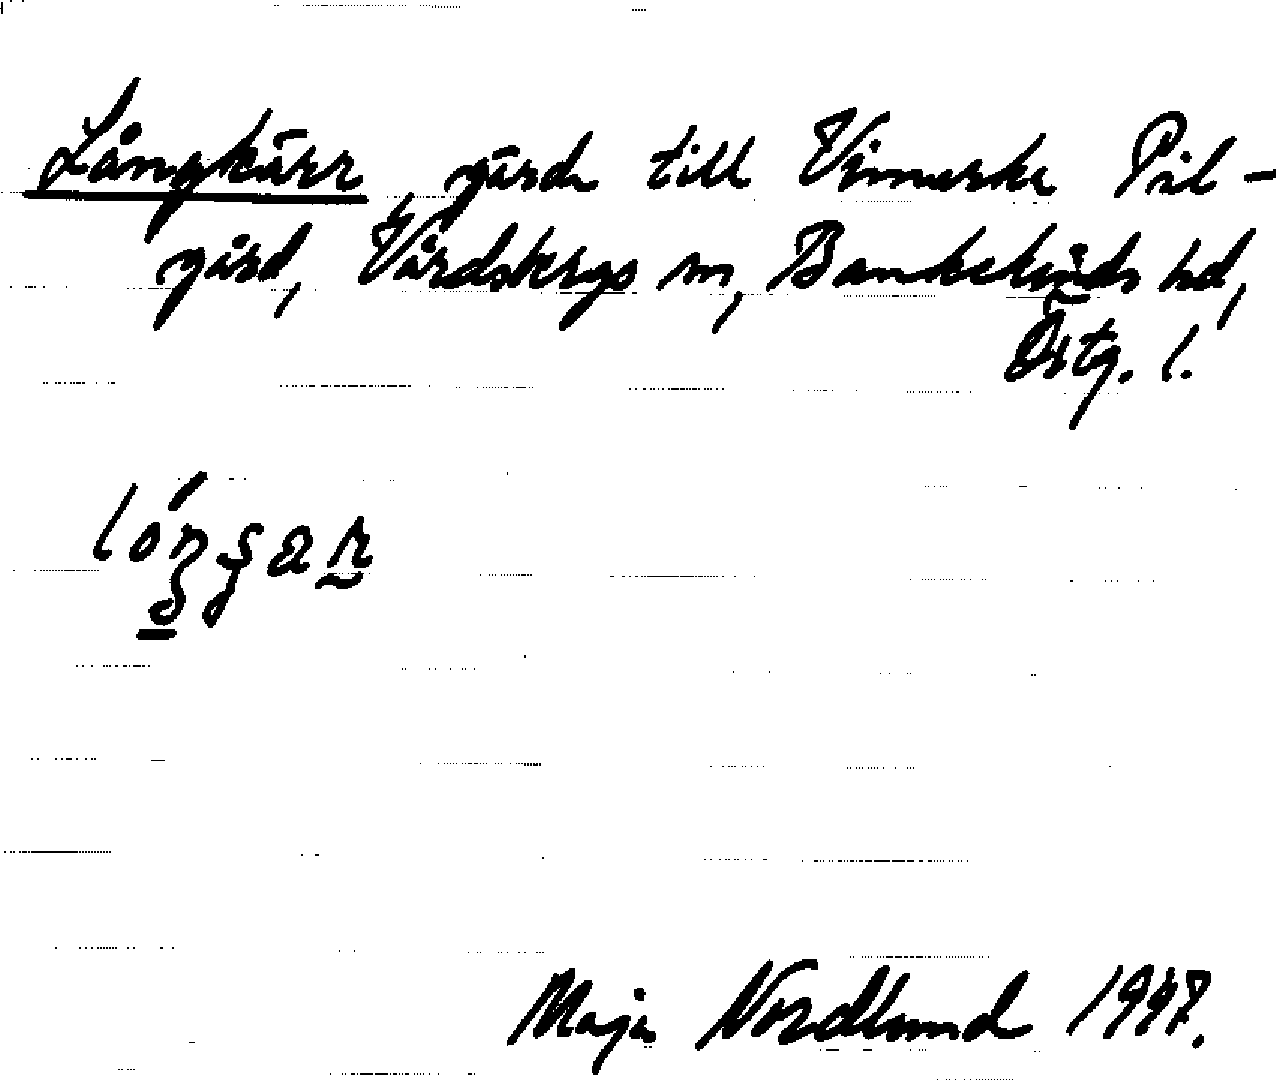 Långkärr gärde till Vimerska Pil-
gård, Vårdsbergs sn, Bankekinds hd,
Östg. l.
Maja Nordlund 1947.